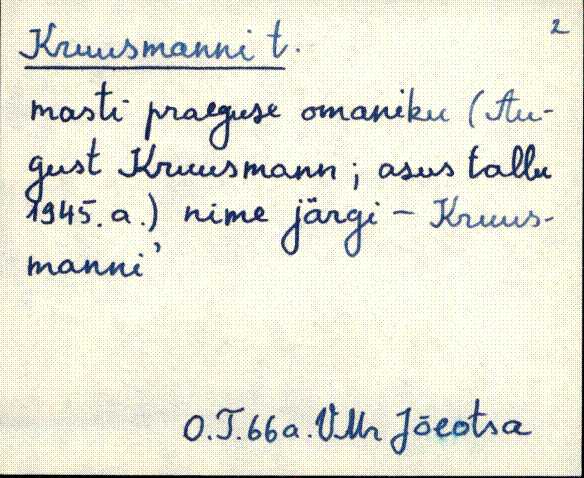 2
Kruusmanni t.
masti praeguse omaniku (Au-
gust Kruusmann; asus tallu
1945.a.) nime järgi – Kruus-
manni'
O.T.66a. VMr Jõeotsa